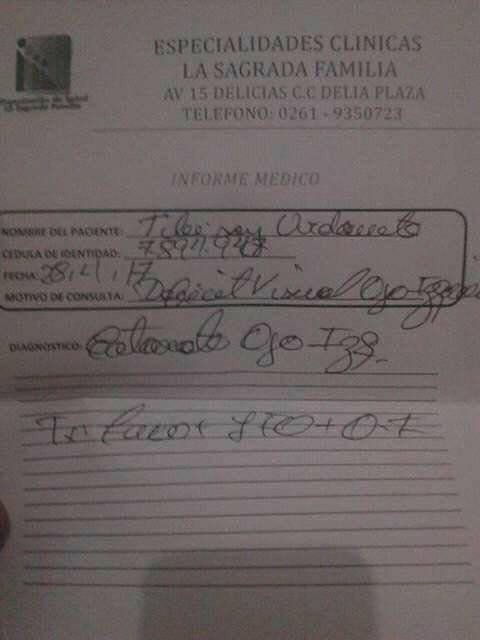 ESPECIALIDADES CLINICAS
LA SAGRADA FAMILIA
AV 15 DELICIAS C.C DELIA PLAZA
TELEFONO: 0261 - 9350723
INFORME MEDICO
NOMBRE DEL PACIENTE: Urdaneta
CEDULA DE IDENTIDAD: 7.897.948
FECHA: 28,4,17
MOTIVO DE CONSULTA: Deficit Visual Ojo Izquie
DIAGNOSTICO: Catarata Ojo Izq.